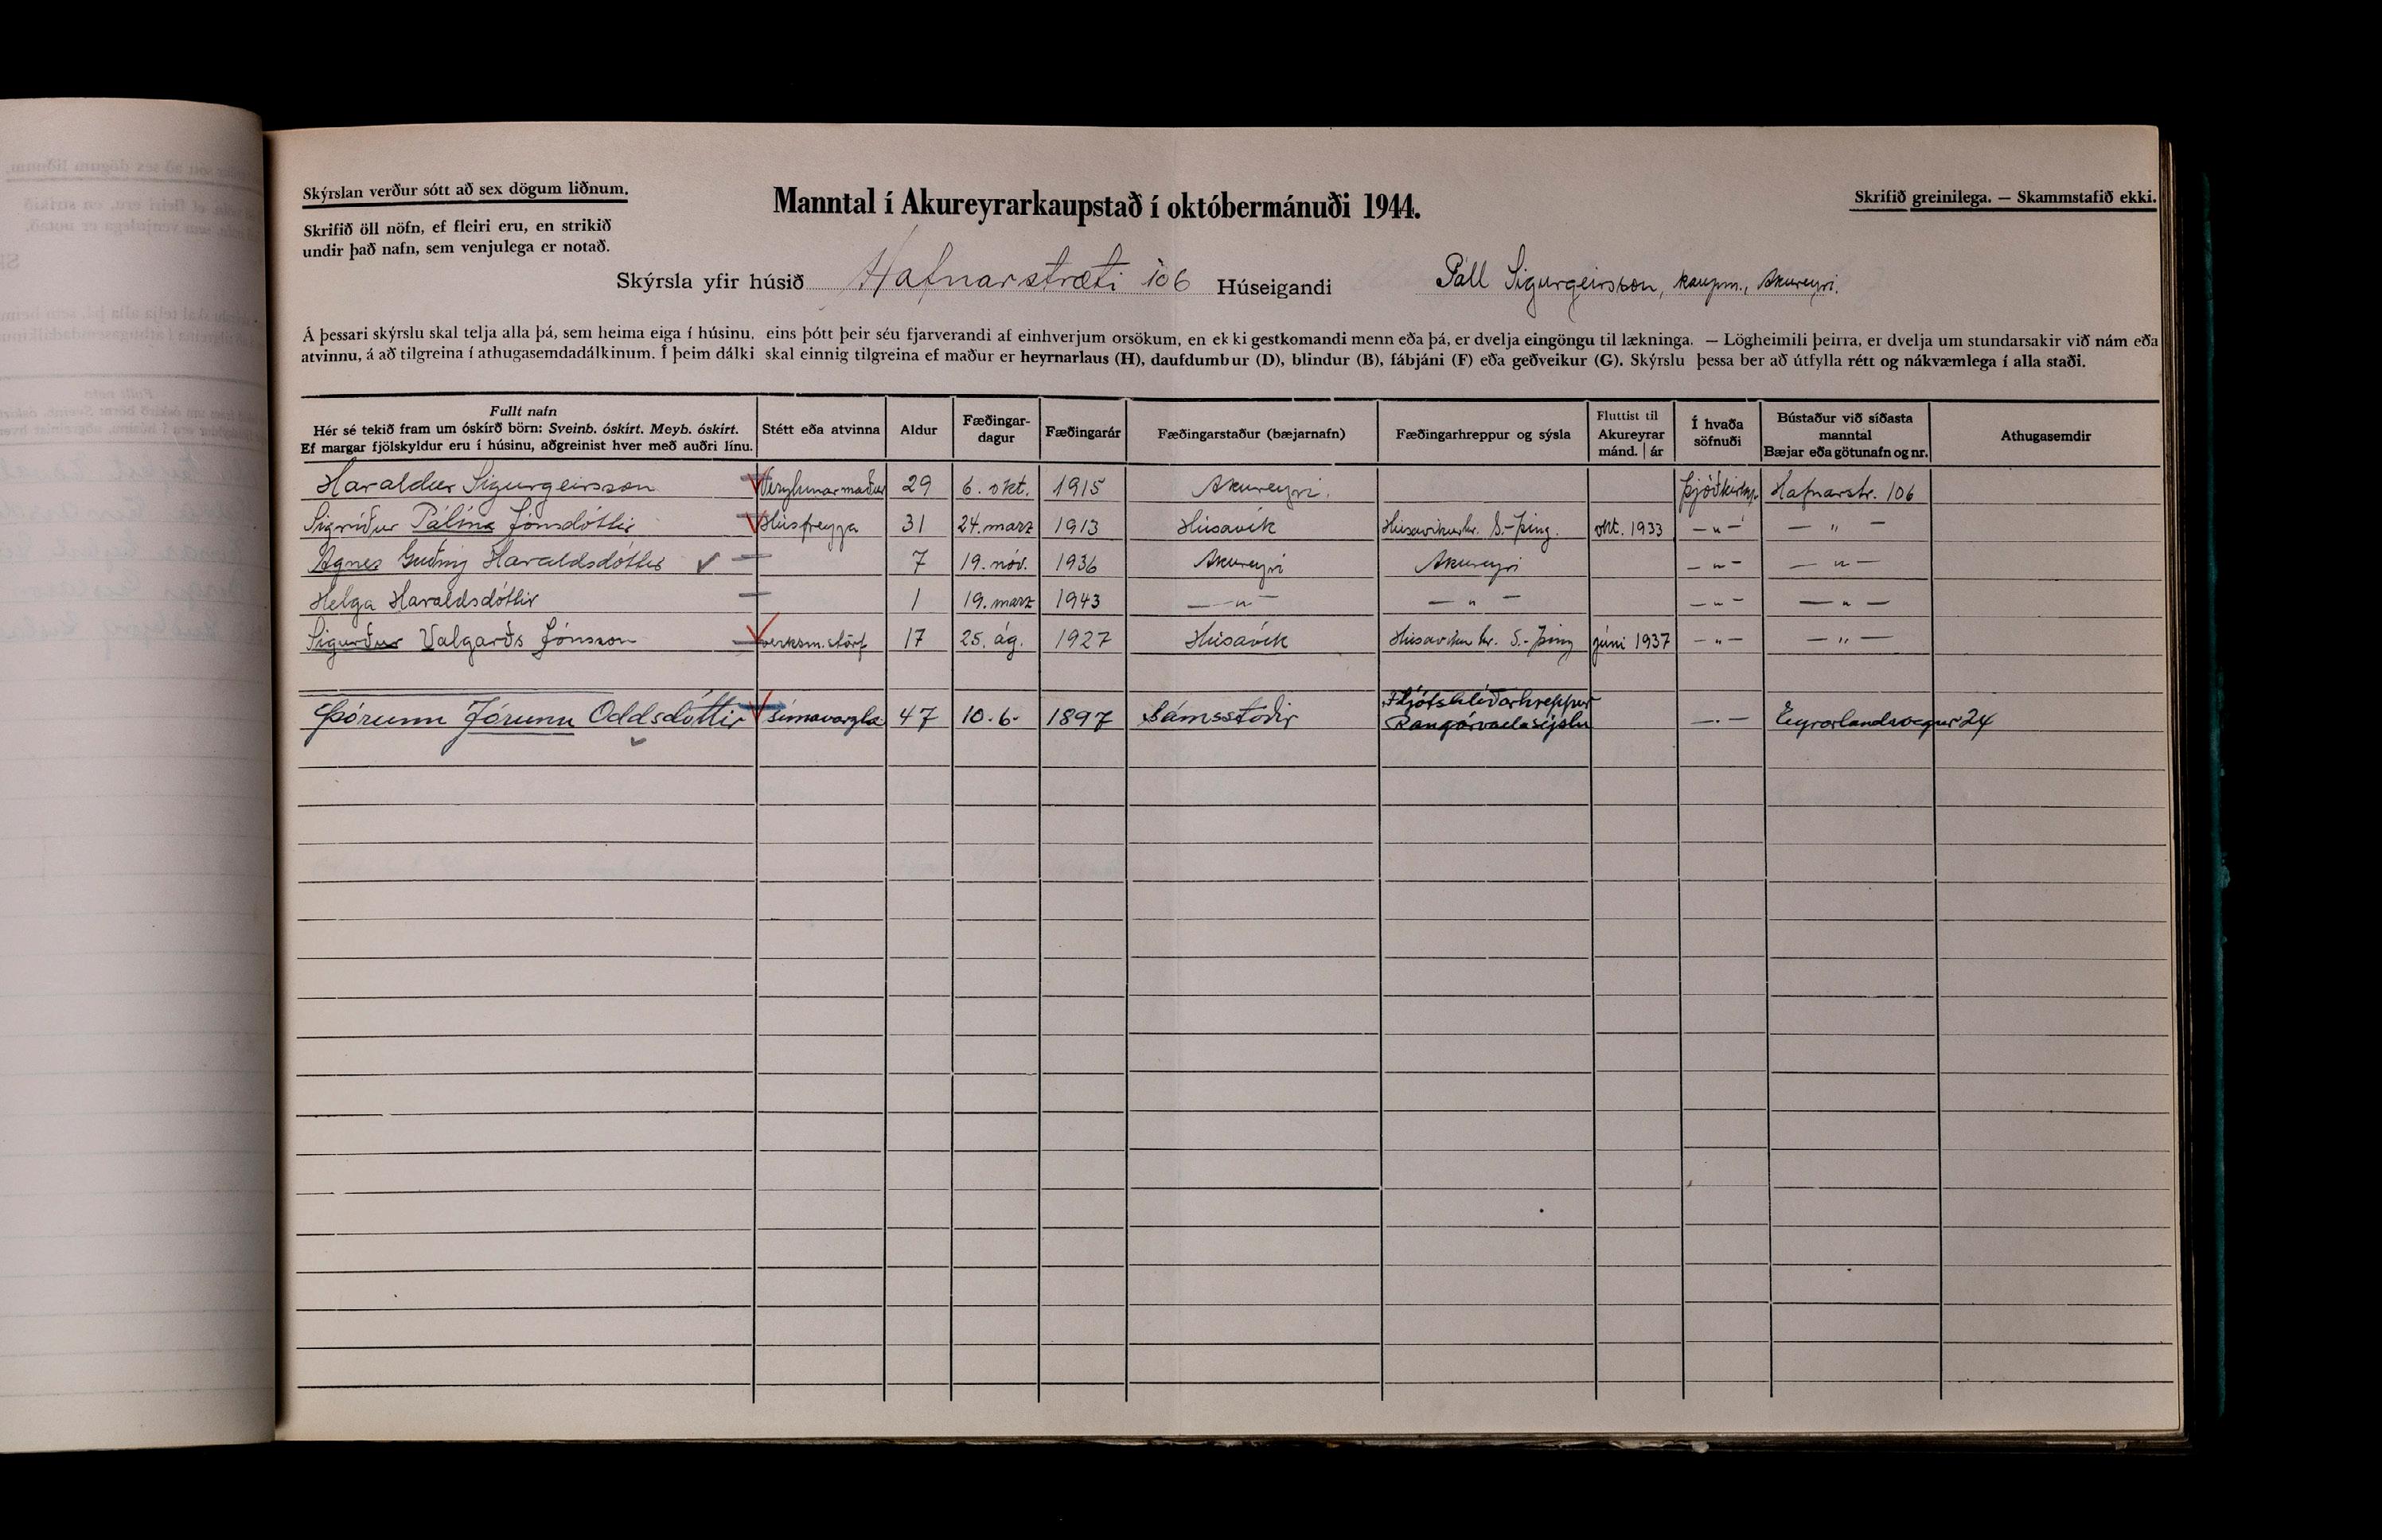 Skýrslan verður sótt að sex dögum liðnum.
Skrifið öll nöfn, ef fleiri eru, en strikið
undir það nafn, sem venjulega er notað.
Manntal í Akureyrarkaupstað í októbermánuði 1944.
Skrifið greinilega. — Skammstafið ekki.
Skýrsla yfir húsið Hafnarstræti 106 Húseigandi Páll Sigurgeirsson, kaupm., Akureyri.
Á þessari skýrslu skal telja alla þá, sem heima eiga í húsinu, eins þótt þeir séu fjarverandi af einhverjum orsökum, en ekki gestkomandi menn eða þá, er dvelja eingöngu til lækninga. — Lögheimili þeirra, er dvelja um stundarsakir við nám eða
atvinnu, á að tilgreina í athugasemdadálkinum. Í þeim dálki skal einnig tilgreina ef maður er heyrnarlaus (H), daufdumbur (D), blindur (B), fábjáni (F) eða geðveikur (G). Skýrslu þessa ber að útfylla rétt og nákvæmlega í alla staði.
Fullt nafn
Hér sé tekið fram um óskírð börn: Sveinb. óskírt. Meyb. óskírt.
Ef margar fjölskyldur eru í húsinu, aðgreinist hver með auðri línu.
Stétt eða atvinna
Aldur
Fæðingar-
dagur
Fæðingarár
Fæðingarstaður (bæjarnafn)
Fæðingarhreppur og sýsla
Fluttist til
Akureyrar
mánd. | ár
Í hvaða
söfnuði
Bústaður við síðasta
manntal
Bæjar eða götunafn og nr.
Athugasemdir
Haraldur Sigurgeirsson Verzlunarmaður 29 6. okt. 1915 Akureyri. Þjóðkirkj. Hafnarstr. 106
Sigríður Pálína Jónsdóttir Húsfreyja 31 24. marz 1913 Húsavík Húsavíkurhr. S.-Þing. okt. 1933 — " — — " —
Agnes Guðný Haraldsdóttir 7 19. nóv. 1936 Akureyri Akureyri — " — — " —
Helga Haraldsdóttir 1 19. marz 1943 — " — — " — — " — — " —
Sigurður Valgarðs Jónsson verksm.störf 17 25. ág. 1927 Húsavík Húsavíkur hr. S.-Þing júní 1937 — " — — " —
Þórunn Jórunn Oddsdóttir símavarzla 47 10.6. 1897 Sámsstöðir Fljótshlíðarhreppur
Rangárvallasýslu — . — Eyrarlandsvegur 24